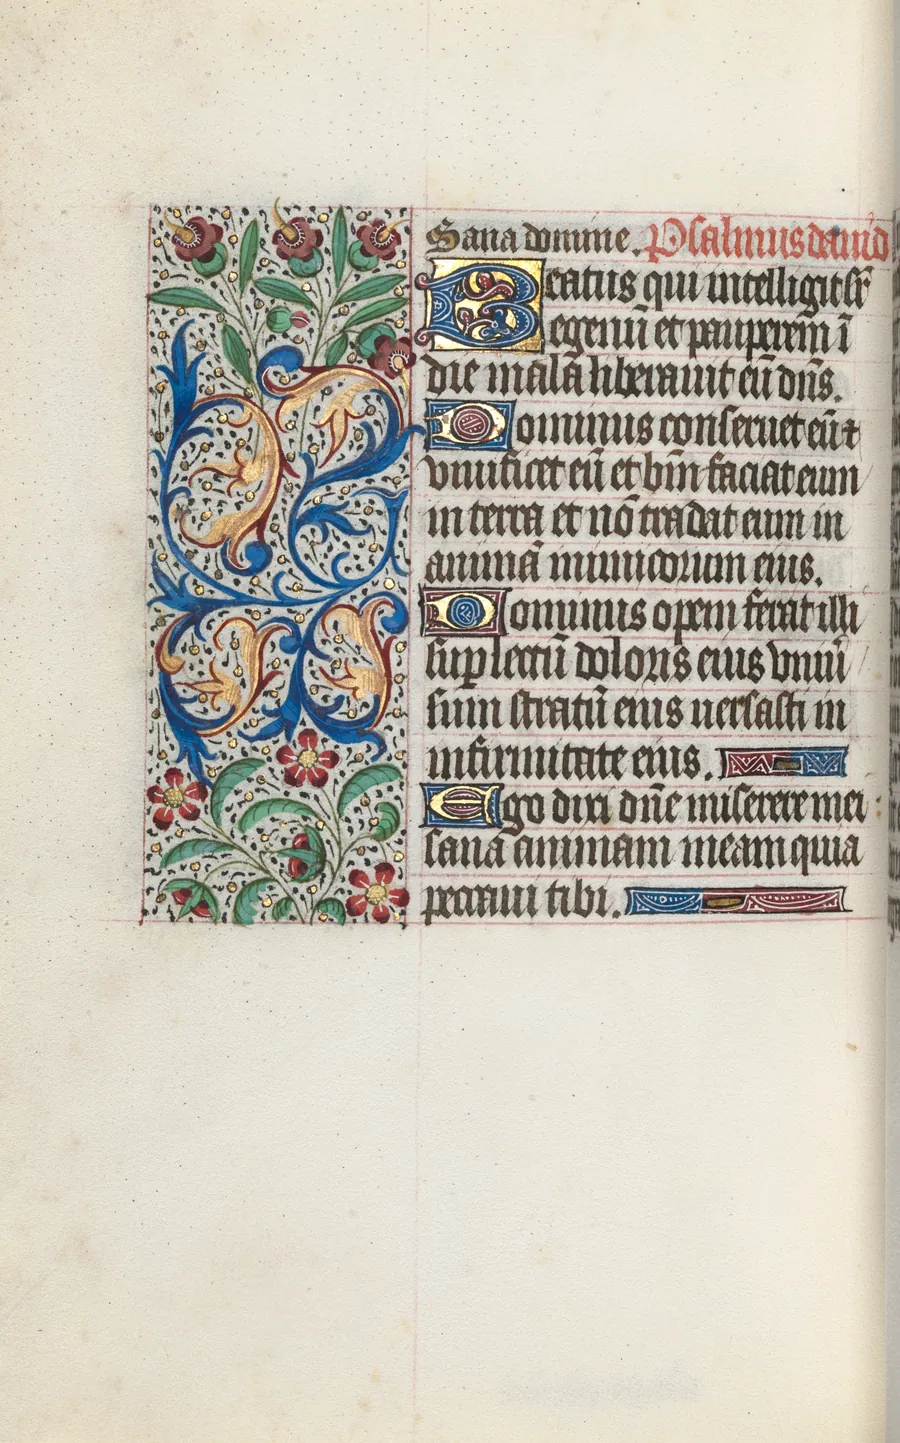 Sana domine. Psalmus dauid
Beatus qui intelligit sr̄
egenū et pauperem ī
die mala liberauit eū dn̄s.
Dominus conseruet eū ⁊
viuificet eū et bm̄ faciat eum
in terra et nō tradat eum in
animā inimicorum eius.
Dominus opem ferat illi
sup lectū doloris eius vniuū
sum stratū eius uersasti in
infirmitate eius.
Ego dixi dn̄e miserere mei
sana animam meam quia
peccaui tibi.